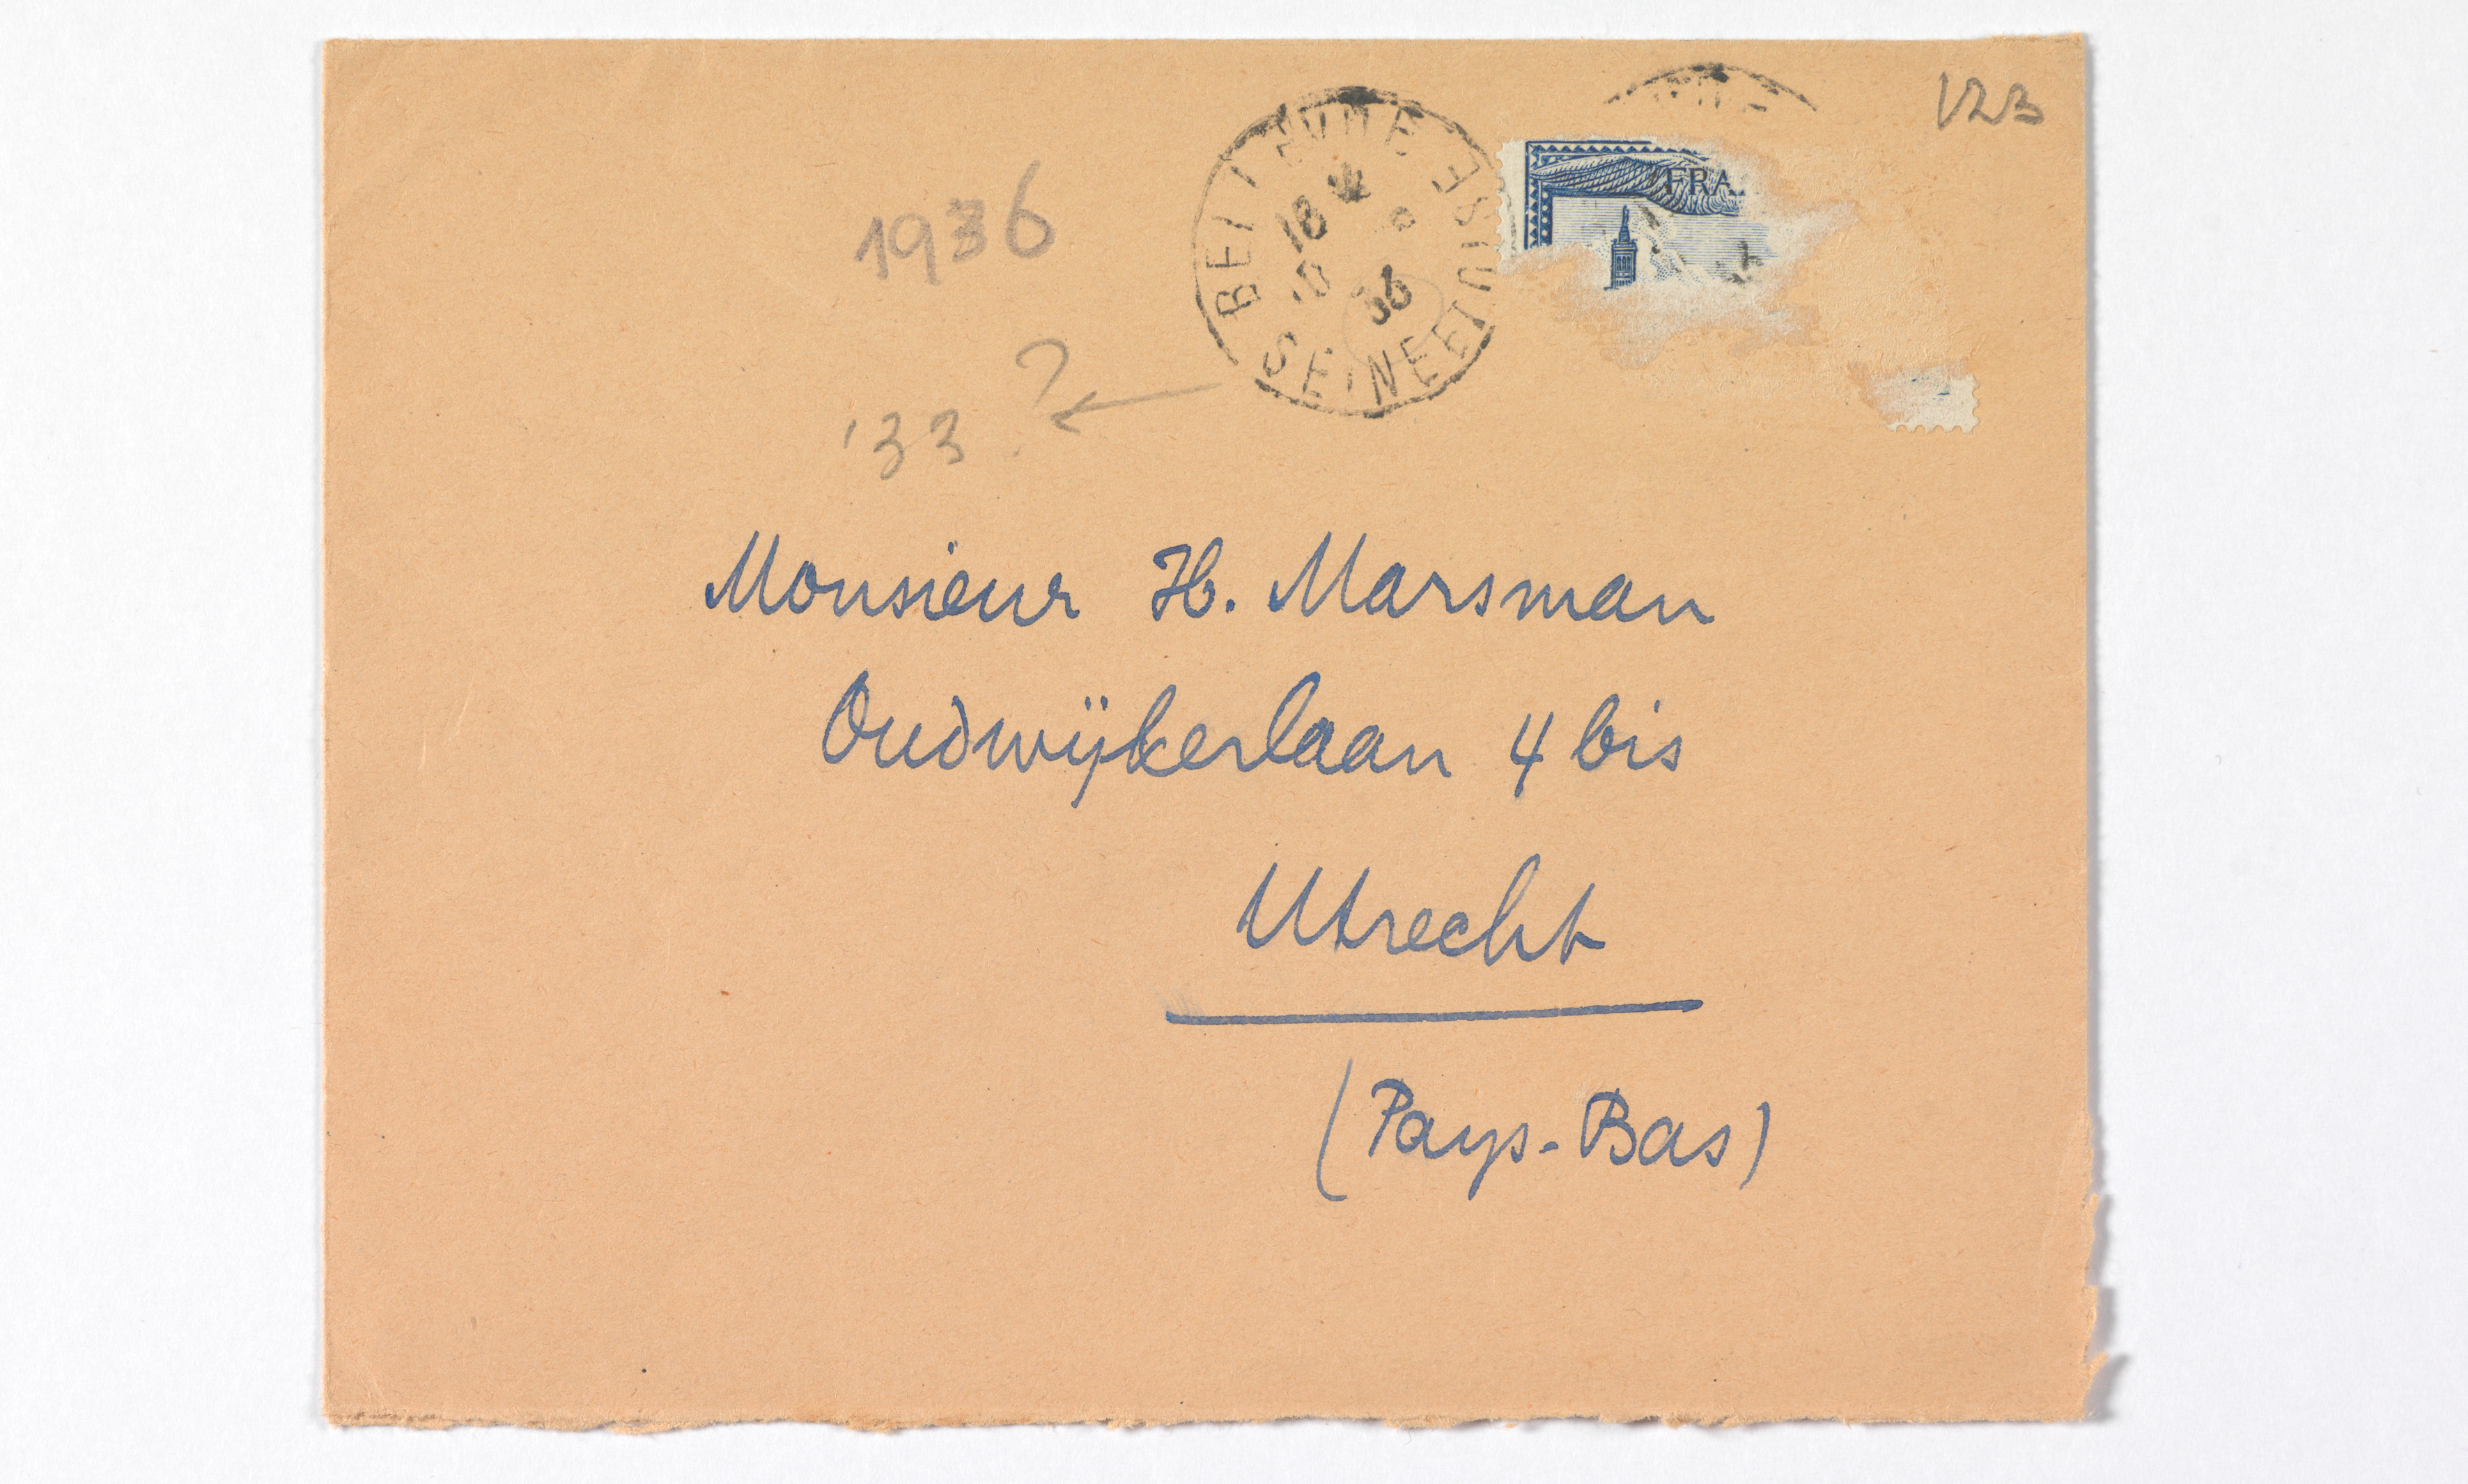 V23
BELLEVUE
18
36
SEINE ET OISE
FRA
1936
'33 ?
Monsieur H. Marsman
Oudwijkerlaan 4 bis
Utrecht
(Pays-Bas)